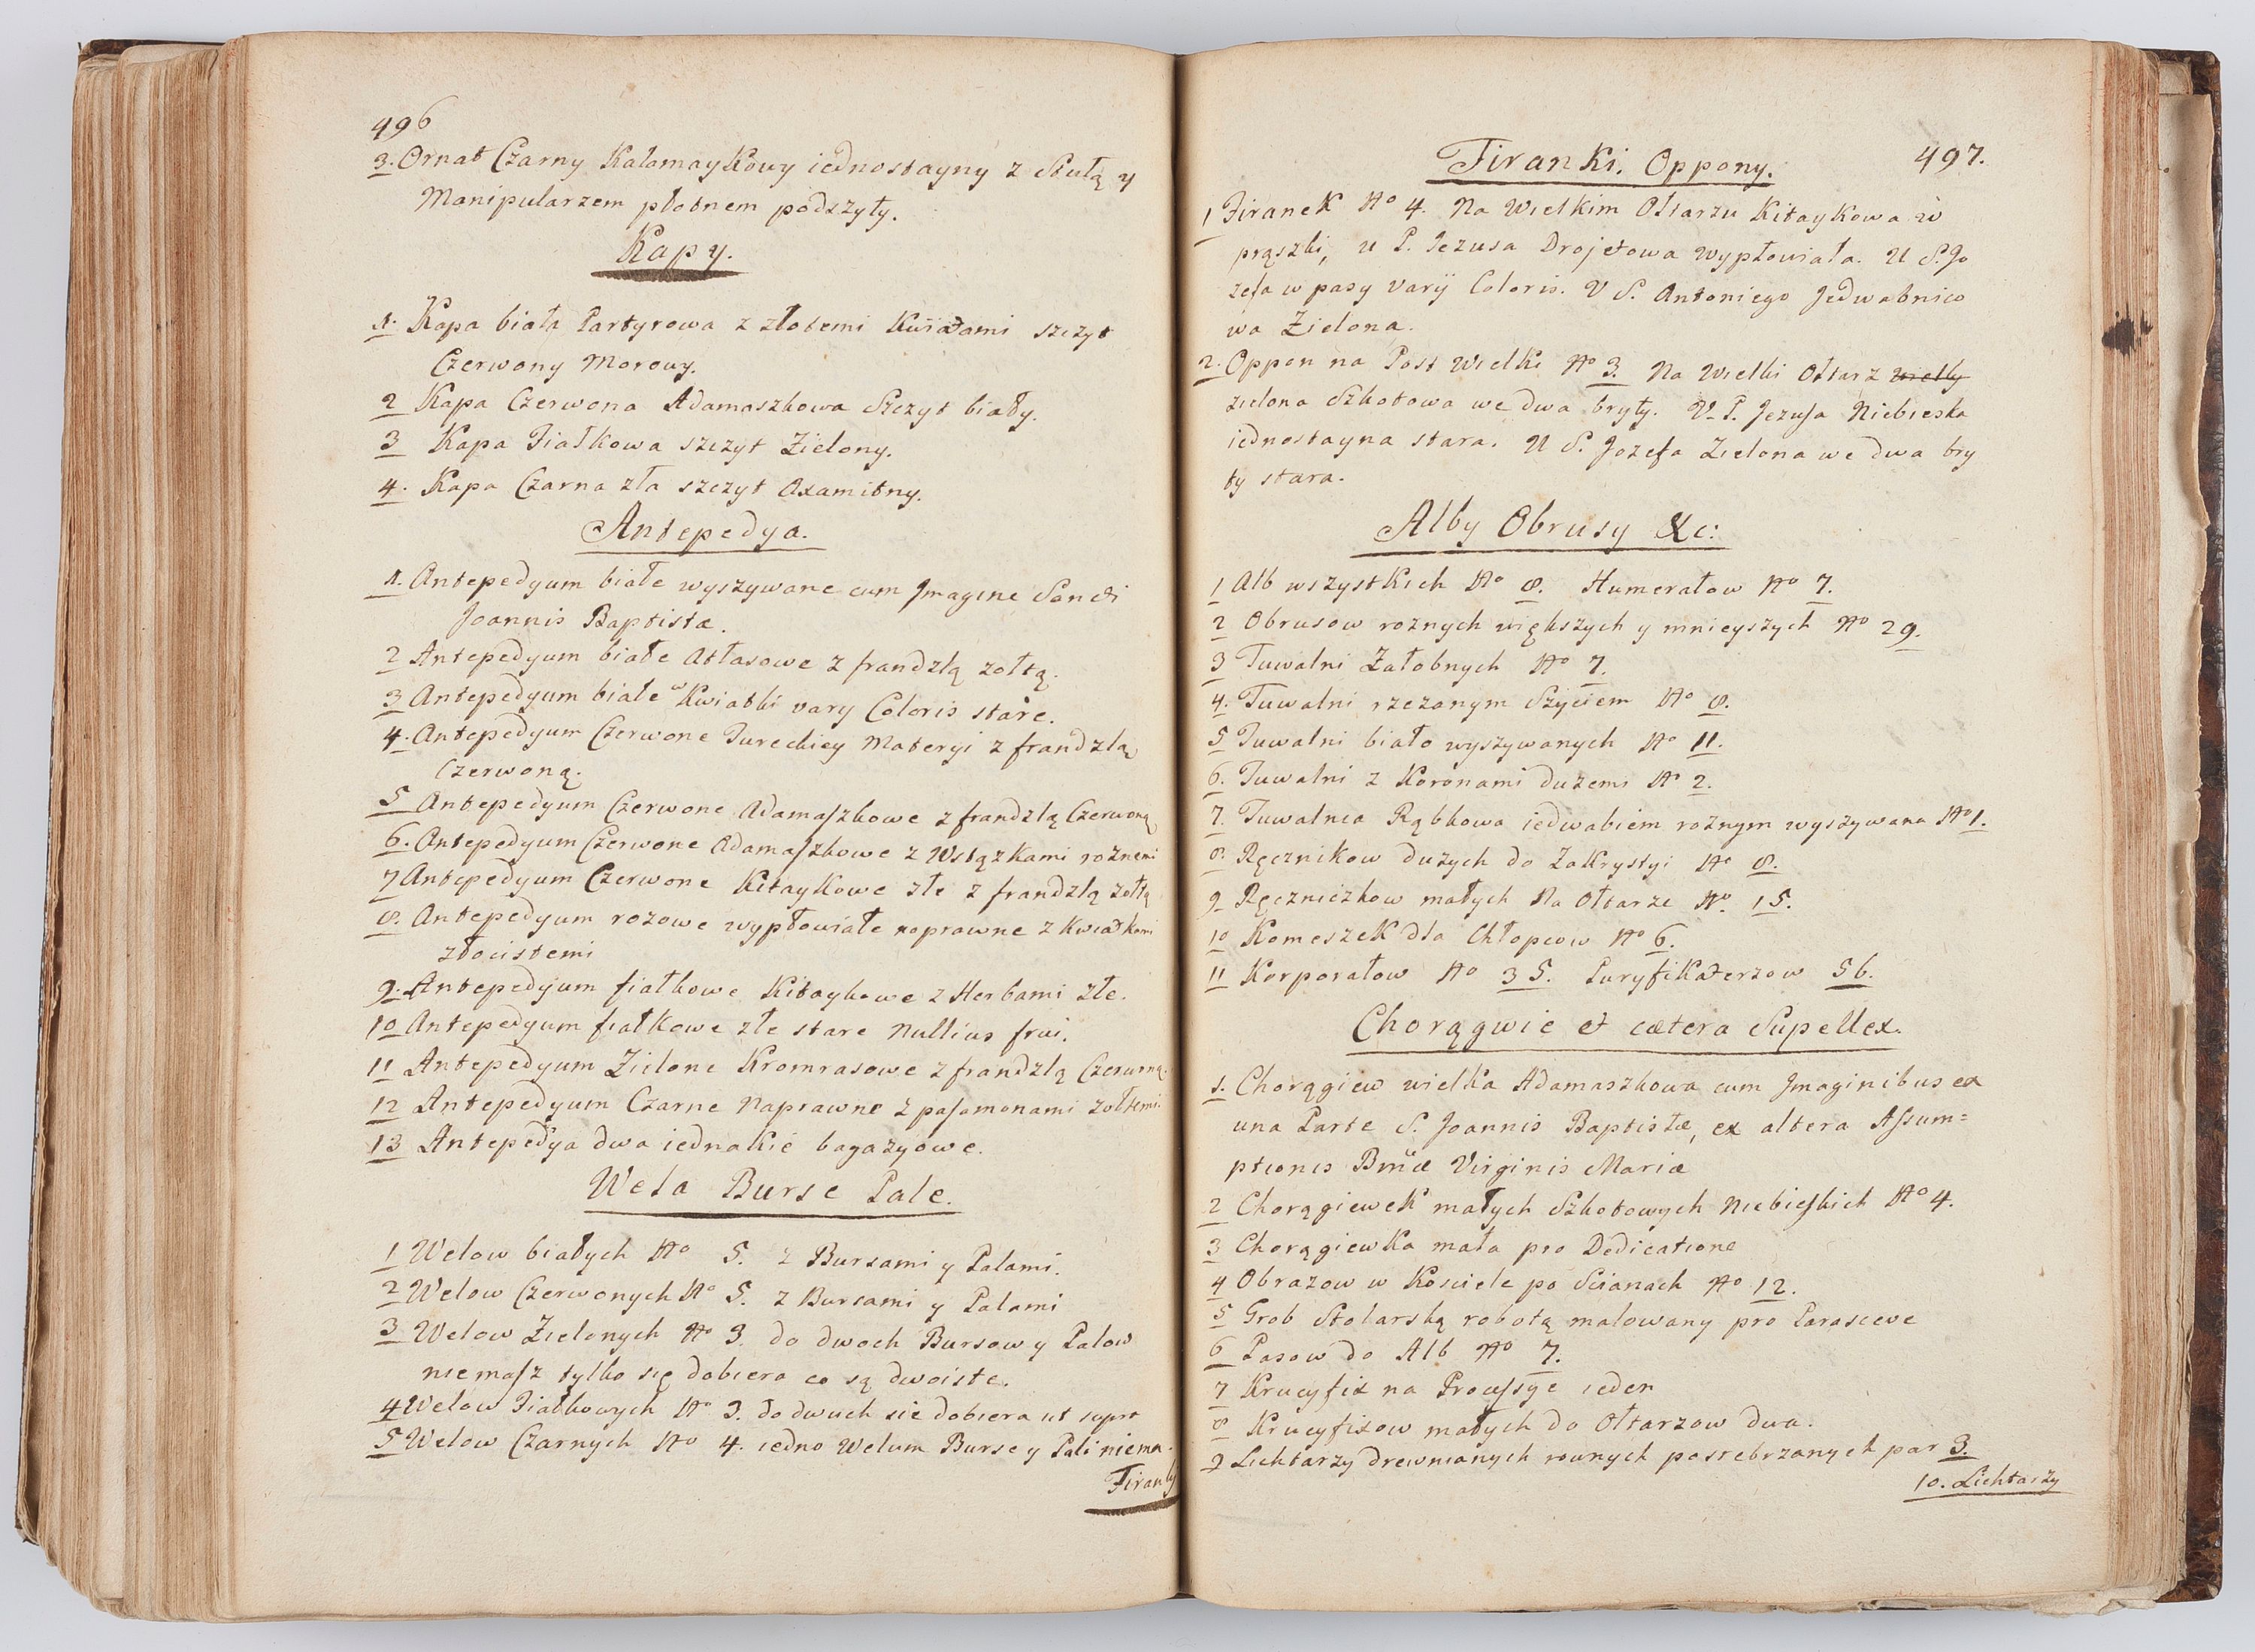 496
3. Ornat Czarny Kalamaykowy iednostayny z Stułą y
Manipularzem płotnem podszyty.
Kapy.
1. Kapa biała Partyrowa z złotemi Kwiatami szczyt
Czerwony Morowy.
2 Kapa Czerwona Adamaszkowa Szczyt biały.
3 Kapa Fiałkowa szczyt Zielony.
4. Kapa Czarna zła szczyt Axamitny.
Antepedya.
1. Antepedyum białe wyszywane cum Jmagine Sancti
Joannis Baptistæ.
2 Antepedyum białe Atłasowe z frandzlą zołtą.
3 Antepedyum białe w Kwiatki vary Coloris stare.
4. Antepedyum Czerwone Tureckiey Materyi z frandzlą
Czerwoną.
5 Antepedyum Czerwone Adamaszkowe z frandzlą Czerwoną
6. Antepedyum Czerwone Adamaszkowe z Wstązkami roznemi
7 Antepedyum Czerwone Kitaykowe złe z frandzlą zołtą
8. Antepedyum rozowe wypłowiałe naprawne z Kwiatkami
złocistemi
9. Antepedyum fiałkowe Kitaykowe z Herbami złe.
10 Antepedyum fiałkowe złe stare Nullius frui.
11 Antepedyum Zielone Kromrasowe z frandzlą Czerwoną.
12 Antepedyum Czarne Naprawne z pasamonami zołtemi.
13 Antepedya dwa iednakie bagazyowe.
Wela Burse Pale.
1 Welow białych No 5. z Bursami y Palami.
2 Welow Czerwonych No 5. z Bursami y Palami
3 Welow Zielonych No 3. do dwoch Bursow y Palow
niemasz tylko się dobiera co są dwoiste.
4 Welow Fiałkowych No 3. do dwuch sie dobiera ut supra
5 Welow Czarnych No 4. iedno Welum Burse y Pali niema.
Firanki
497.
Firanki. Oppony.
1 Firanek No 4. Na Wielkim Ołtarzu Kitaykowa w
prązki, u P. Jezusa Drojetowa wypłowiała. U S. Jo
zefa w pasy varÿ Coloris. U S. Antoniego Jedwabnico
wa Zielona.
2. Oppon na Post Wielki No 3. Na Wielki Ołtarz
zielona Szkotowa we dwa bryty. U P. Jezusa Niebieska
iednostayna stara. U S. Jozefa Zielona we dwa bry
ty stara.
Alby Obrusy &c:
1 Alb wszystkich No 8. Humerałow No 7.
2 Obrusow roznych większych y mnieyszych No 29.
3 Tuwalni Załobnych No 7.
4. Tuwalni rzezanym Szyciem No 8.
5 Tuwalni biało wyszywanych No 11.
6. Tuwalni z Koronami duzemi No 2.
7. Tuwalnia Rąbkowa iedwabiem roznym wyszywana No 1.
8. Ręcznikow duzych do Zakrystyi No 8.
9 Ręczniczkow małych Na Ołtarze No. 15.
10 Komeszek dla Chłopcow No 6.
11 Korporałow No 35. Puryfikaterzow 56.
Chorągwie et cætera Supellex.
1. Chorągiew wielka Adamaszkowa cum Jmaginibus ex
una Parte S. Joannis Baptistæ, ex altera Assum=
ptionis Bmæ Virginis Mariæ
2 Chorągiewek małych Szkotowych Niebieskich No 4.
3 Chorągiewka mała pro Dedicatione
4 Obrazow w Kosciele po Scianach No 12.
5 Grob Stolarską robotą malowany pro Parasceve
6 Pasow do Alb No 7.
7 Krucyfix na Processye ieden
8 Krucyfixow małych do Ołtarzow dwa.
9 Lichtarzy drewnianych rownych posrebrzanych par 3.
10. Lichtarzy